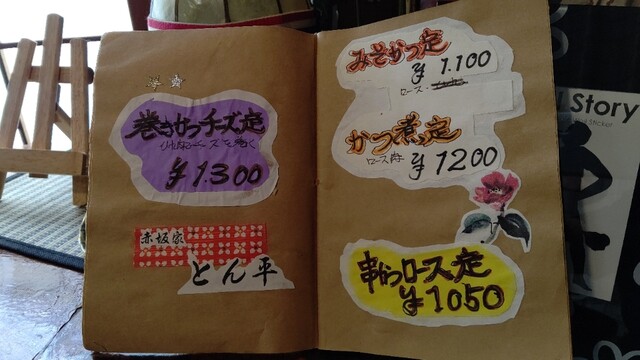 巻きかつチーズ定
¥1.300
赤坂家
とん平
みそかつ定
¥1.100
ロース
かつ煮定
ロース
¥1200
串かつロース定
¥1050
Story